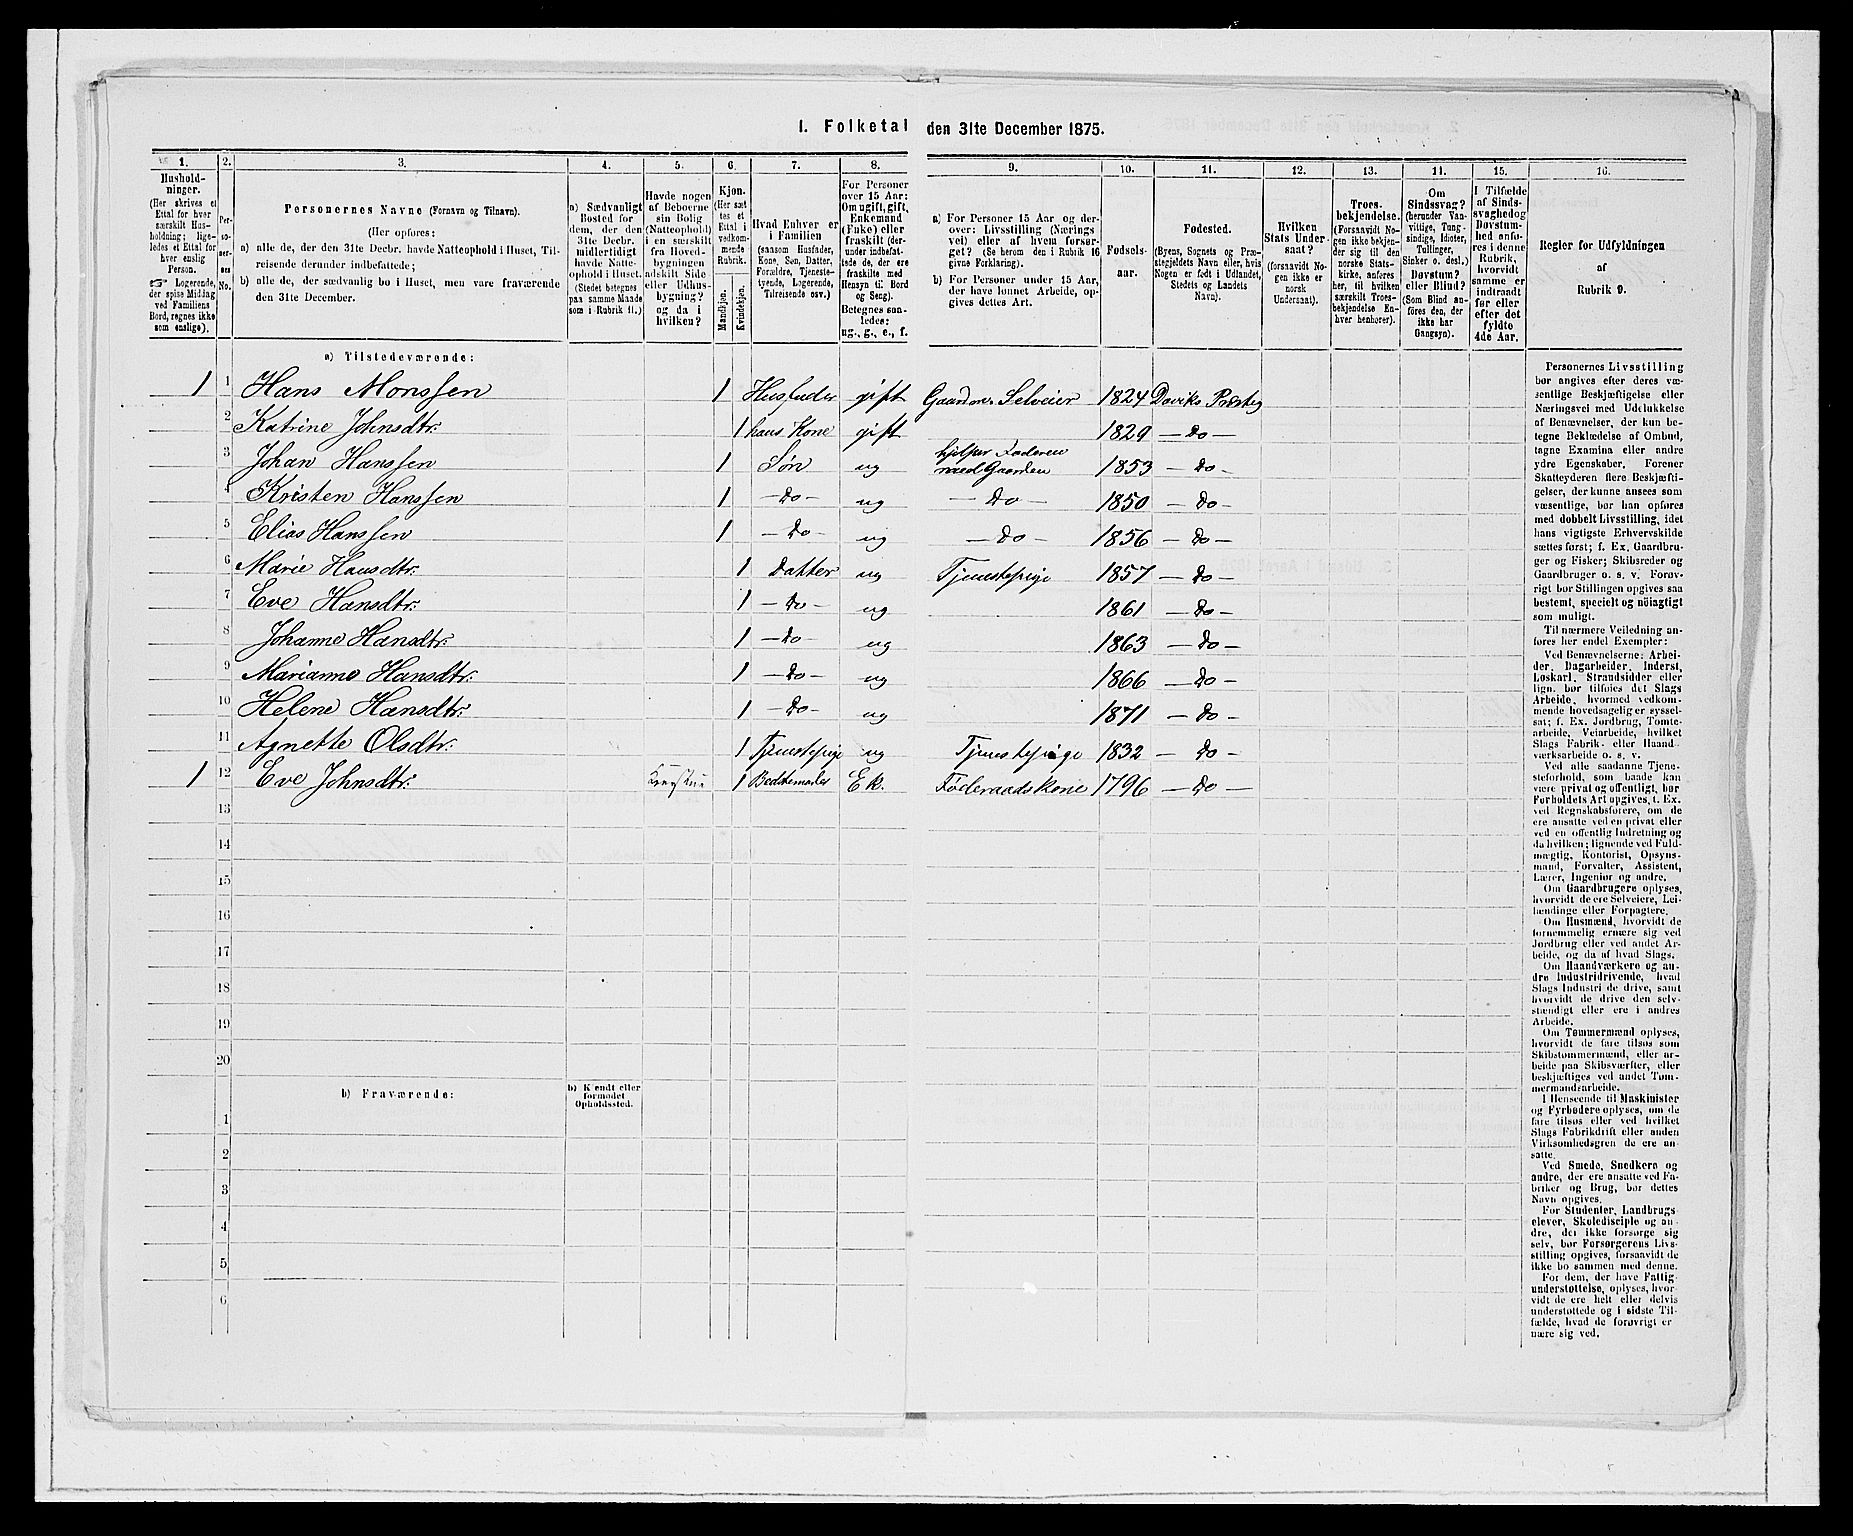 I. Folketal den 31te December 1875.
1. 2. 3. 4. 5. 6. 7. 8. 9. 10. 11. 12. 13. 14. 15. 16.
Hushold-
ninger.
(Her skrives et
Ettal for hver
særskilt Hus-
holdning; lige-
ledes et Ettal for
hver enslig
Person.
☞ Logerende,
der spise Middag
ved Familiens
Bord, regnes ikke
som enslige).
Per-
so-
ner-
nes
No.
Personernes Navne (Fornavn og Tilnavn).
(Her opføres:
a) alle de, der den 31te Decbr. havde Natteophold i Huset, Til-
reisende derunder indbefattede;
b) alle de, der sædvanlig bo i Huset, men vare fraværende
den 31te December.
a) Sædvanligt
Bosted for
dem, der den
31te Decbr.
midlertidigt
havde Natte-
ophold i Huset.
(Stedet betegnes
paa samme Maade
som i Rubrik 11.)
Havde nogen
af Beboerne
sin Bolig
(Natteophold)
i en særskilt
fra Hoved-
bygningen
adskilt Side
eller Udhus-
bygning?
og da i
hvilken?
Kjøn.
(Her sæt-
tes et
Ettal i
vedkom-
mende
Rubrik.
Mandkjøn.
Kvindekjøn.
Hvad Enhver er
i Familien
(saasom Husfader,
Kone, Søn, Datter,
Forældre, Tjeneste-
tyende, Logerende,
Tilreisende osv.)
For Personer
over 15 Aar:
Om ugift, gift,
Enkemand
(Enke) eller
fraskilt (der-
under indbefat-
tede de, der ere
fraskilte med
Hensyn til Bord
og Seng).
Betegnes saa-
ledes:
ug., g., e., f.
a) For Personer 15 Aar og der-
over: Livsstilling (Nærings-
vei) eller af hvem forsør-
get? (Se herom den i Rubrik 16
givne Forklaring).
b) For Personer under 15 Aar,
der have lønnet Arbeide, op-
gives dettes Art.
Fødsels-
aar.
Fødested.
(Byens, Sognets og Præ-
stegjeldets Navn eller, hvis
Nogen er født i Udlandet,
Stedets og Landets
Navn).
Hvilken
Stats Under-
saat?
(forsaavidt No-
gen ikke er
norsk
Undersaat).
Troes-
bekjendelse.
(Forsaavidt No-
gen ikke bekjen-
der sig til den
norske Stats-
kirke, anføres
her, til hvilken
særskilt Troes-
bekjendelse En-
hver henhører).
Om
Sindssvag?
(herunder Van-
vittige, Tung-
sindige, Idioter,
Tullinger,
Sinker o. desl.)
Døvstum?
eller Blind?
(Som Blind an-
føres den, der
ikke har
Gangsyn).
I Tilfælde
af Sinds-
svaghed og
Døvstum-
hed anfø-
res i denne
Rubrik,
hvorvidt
samme er
indtraadt
før eller
efter det
fyldte
4de Aar.
Regler for Udfyldningen
af
Rubrik 9.
a) Tilstedeværende:
1 1 Hans Monssen 1 Husfader gift Gaardm. Selveier 1824 Daviks Præsteg
2 Katrine Johnsdtr. 1 hans Kone gift 1829 — Do —
3 Johan Hanssen 1 Søn ug hjelper Faderen med Gaarden 1853 — Do —
4 Kristen Hanssen 1 — Do — ug — Do — 1850 — Do —
5 Elias Hanssen 1 — Do — ug — Do — 1856 — Do —
6 Marie Hansdtr. 1 Datter ug Tjenestepige 1857 — Do —
7 Eve Hansdtr. 1 — Do — ug 1861 — Do —
8 Johanne Hansdtr. 1 — Do — ug 1863 — Do —
9 Marianne Hansdtr. 1 — Do — ug 1866 — Do —
10 Helene Hansdtr. 1 — Do — ug 1871 — Do —
11 Agnette Olsdtr. 1 Tjenestepige ug Tjenestepige 1832 — Do —
1 12 Eve Johnsdtr. 1 Bedstemoder Ek. Føderaadskone 1796 — Do —
13
14
15
16
17
18
19
20
b) Fraværende:
b) Kjendt eller
formodet
Opholdssted.
1
2
3
4
5
6
Personernes Livsstilling
bør angives efter deres væ-
sentlige Beskjæftigelse eller
Næringsvei med Udelukkelse
af Benævnelser, der kun be-
tegne Beklædelse af Ombud,
tagne Examina eller andre
ydre Egenskaber. Forener
Skatteyderen flere Beskjæfti-
gelser, der kunne ansees som
væsentlige, bør han opføres
med dobbelt Livsstilling, idet
hans vigtigste Erhvervskilde
sættes først; f. Ex. Gaardbru-
ger og Fisker; Skibsreder og
Gaardbruger o. s. v. Forøv-
rigt bør Stillingen opgives saa
bestemt, specielt og nöiagtigt
som muligt.
Til nærmere Veiledning an-
føres her endel Exempler:
Ved Benævnelserne: Arbei-
der, Dagarbeider, Inderst,
Løskarl, Strandsidder eller
lign. bør tilføies det Slags
Arbeide, hvormed vedkom-
mende hovedsagelig er syssel-
sat; f. Ex. Jordbrug, Tomte-
arbeide, Veiarbeide, hvilket
Slags Fabrik- eller Haand-
værksarbeide o. s. v.
Ved alle saadanne Tjene-
steforhold, som baade kan
være privat og offentligt, bør
Forholdets Art opgives, t. Ex.
ved Regnskabsførere, om de
ere ansatte ved en privat eller
ved en offentlig Indretning og
da hvilken; lignende ved Fuld-
mægtig, Kontorist, Opsyns-
mand, Forvalter, Assistent,
Lærer, Ingeniør og andre.
Om Gaardbrugere oplyses,
hvorvidt de ere Selveiere, Lei-
lændinge eller Forpagtere.
Om Husmænd, hvorvidt de
fornemmelig ernære sig ved
Jordbrug eller ved andet Ar-
beide, og da af hvad Slags.
Om Haandværkere og an-
dre Industridrivende, hvad
Slags Industri de drive, samt
hvorvidt de drive den selv-
stændigt eller ere i andres
Arbeide.
Om Tømmermænd oplyses,
hvorvidt de fare tilsøs som
Skibstømmermænd, eller ar-
beide paa Skibsværfter, eller
beskjæftiges ved andet Tøm-
mermandsarbeide.
I Henseende til Maskinister
og Fyrbødere oplyses, om de
fare tilsøs eller ved hvilket
Slags Fabrikdrift eller anden
Virksomhedsgren de ere an-
satte.
Ved Smede, Snedkere og
andre, der ere ansatte ved Fa-
briker og Brug, bør dettes
Navn opgives.
For Studenter, Landbrugs-
elever, Skoledisciple og an-
dre, der ikke forsørge sig
selv, bør Forsørgerens Livs-
stilling opgives, forsaavidt de
ikke bo sammen med denne.
For dem, der have Fattig-
understøttelse, oplyses, hvor-
vidt de ere helt eller delvis
understøttede og i sidste Til-
fælde, hvad de forøvrigt er-
nære sig ved.